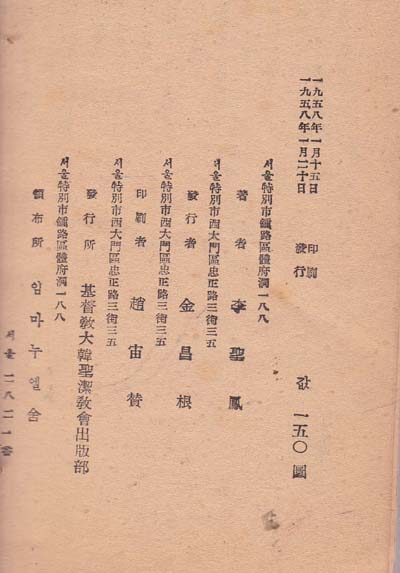 一九五八年一月十五日 印刷
一九五八年一月二十日 發行
값 一五〇圜
서울特別市鍾路區體府洞一八八
著者 李聖鳳
서울特別市西大門區忠正路三街三五
發行者 金昌根
서울特別市西大門區忠正路三街三五
印刷者 趙宙贊
서울特別市西大門區忠正路三街三五
發行所 基督敎大韓聖潔敎會出版部
서울特別市鍾路區體府洞一八八
頒布所 임마누엘舍
서울 一八二一番